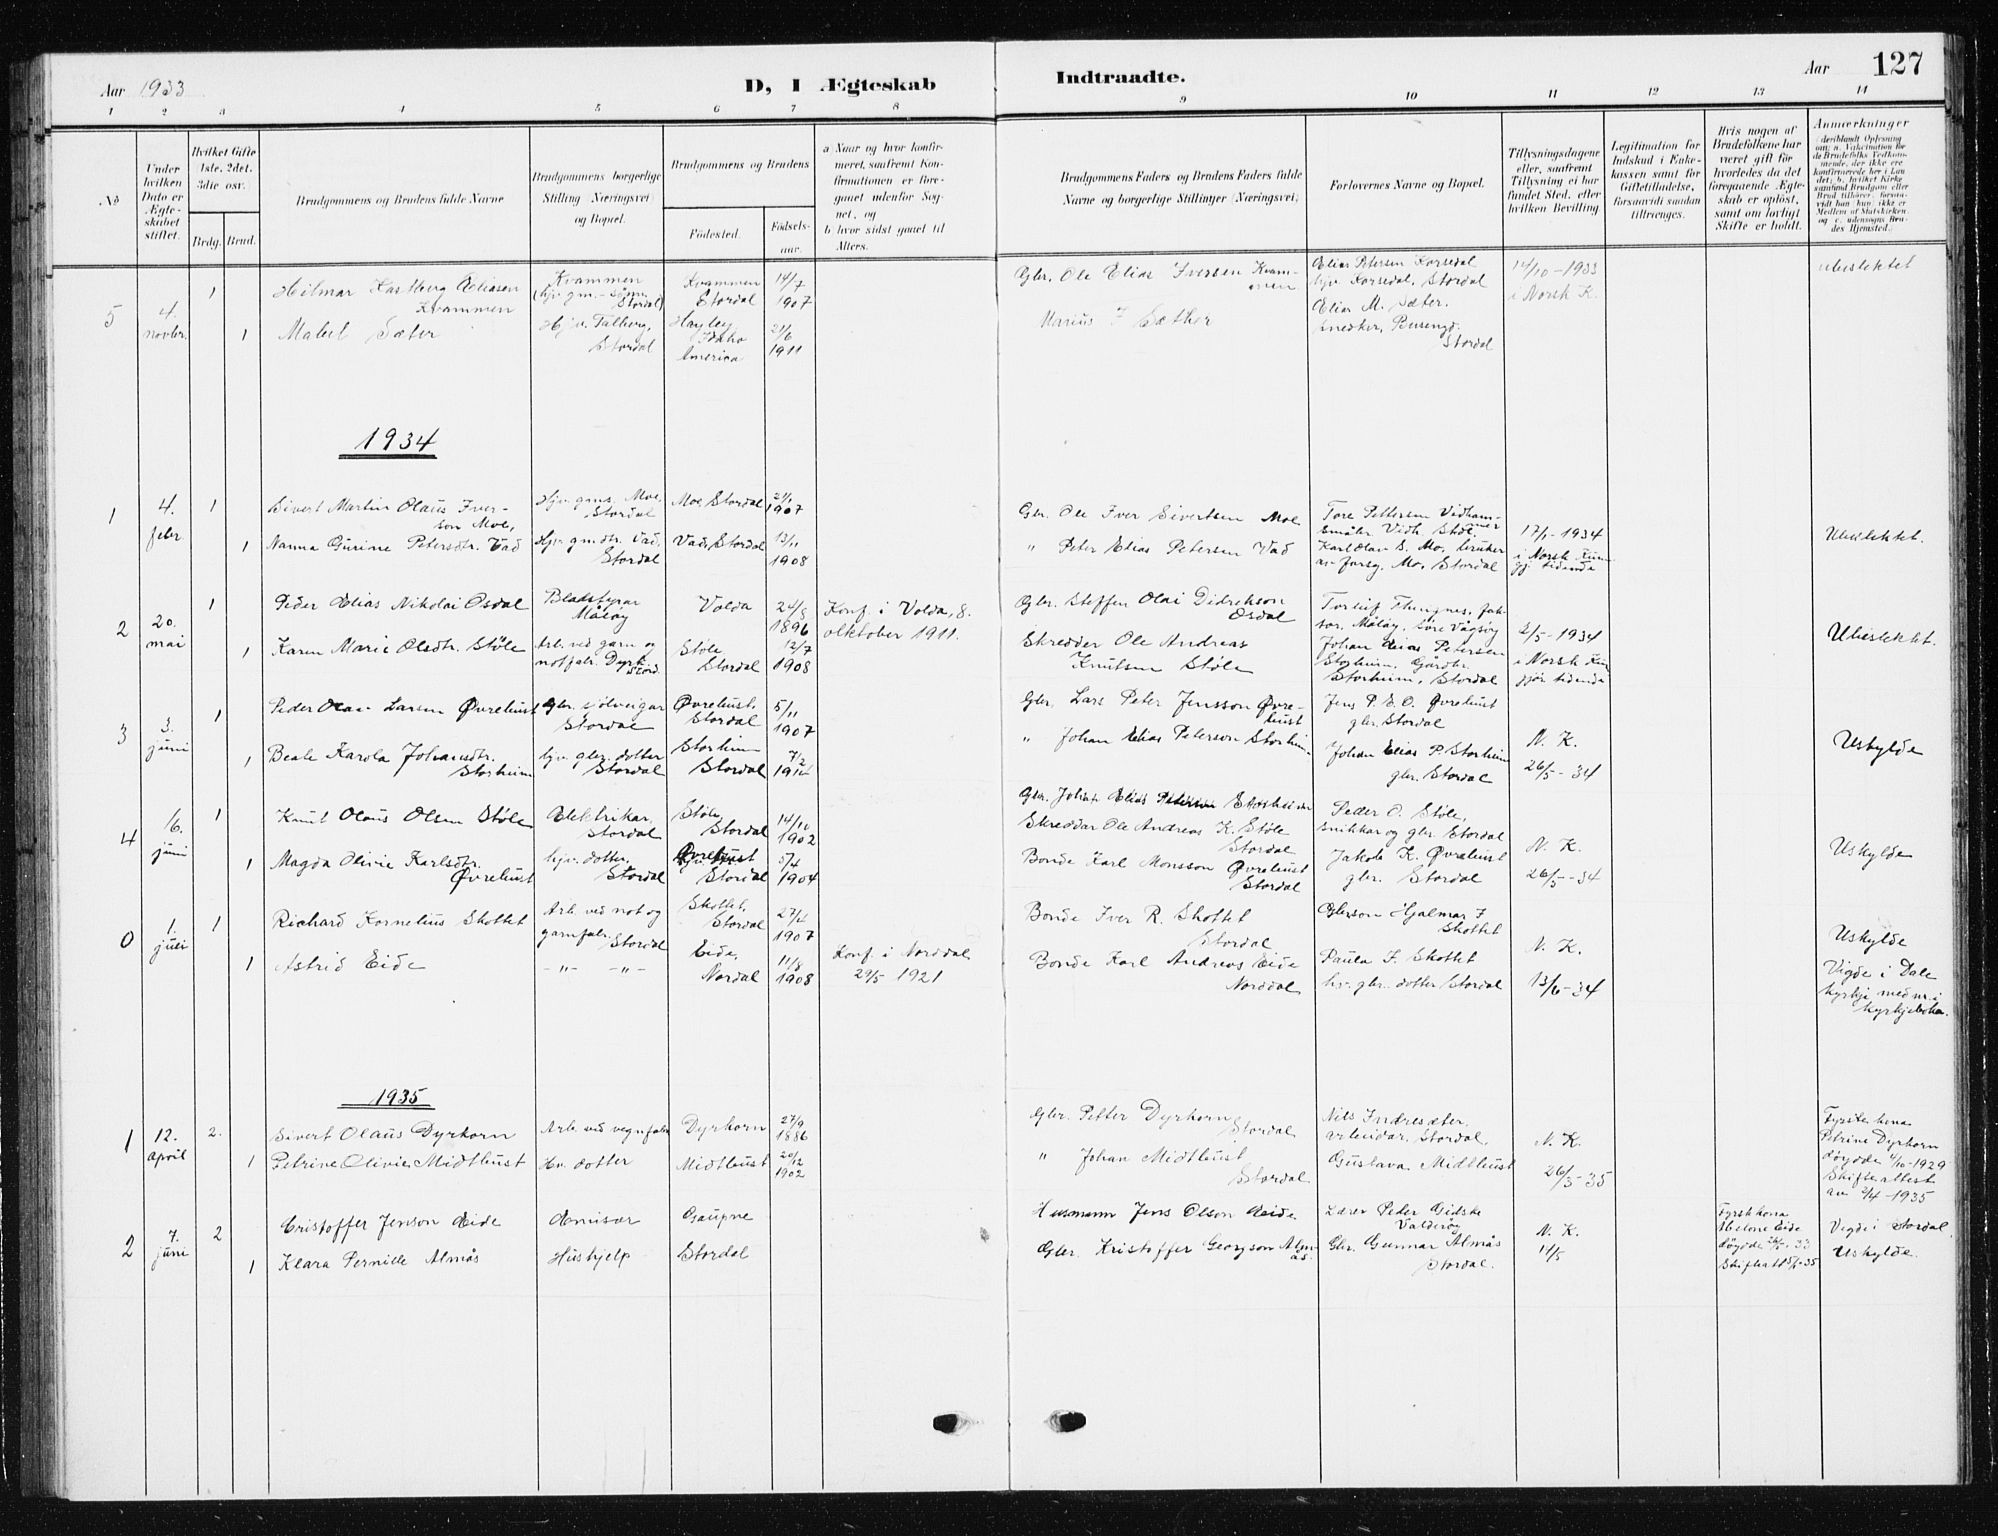 Aar 1933
D, I Ægteskab Indtraadte.
Aar 127
1 2 3 4 5 6 7 8 9 10 11 12 13 14
No
Under hvilken Dato er Ægteskabet stiftet.
Hvilket Gifte 1ste. 2det. 3die osv.
Brdg. Brud.
Brudgommens og Brudens fulde Navne
Brudgommens borgerlige Stilling (Næringsvei) og Bopæl.
Brudgommens og Brudens
Fødested. Fødselsaar.
a Naar og hvor konfirmeret, saafremt Konfirmationen er foregaaet udenfor Sognet, og
b hvor sidst gaaet til Alters.
Brudgommens Faders og Brudens Faders fulde Navne og borgerlige Stillinger (Næringsvei)
Forlovernes Navne og Bopæl.
Tillysningsdagene eller, saafremt Tillysning ei har fundet Sted, efter hvilken Bevilling
Legitimation for Indskud i Enkekassen samt for Giftetilladelse, forsaavidt saadan tiltrænges.
Hvis nogen af Brudefolkene har været gift før hvorledes da det foregaaende Ægteskab er opløst, samt om lovligt Skifte er holdt.
Anmærkninger
5
4. novbr.
1
Hilmar Kastberg Eliasen Kvammen
Kvammen
Stordal
Kvammen Stordal
14/7 1907
Gbr. Ole Elias Iversen Kvammen
Elias Petersen Korsedal
hjv. Korsedal, Stordal
14/10-1933
i Norsk K.
ubeslektet
1
Mabel Sæter
Hjv. Talberg, Stordal
Hayley Idaho America
21/6 1911
Marius J Sæther
Elias M. Sæter,
snedker, Busengd. Stordal
1934
1
4. febr
1
Sivert Martin Olaus Iverson Moe,
Hjv. gms. Moe, Stordal
Moe, Stordal
21/1 1907
Gbr. Ole Iver Sivertsen Moe
Tore Pettersen Vidhammer
17/1-1934
i Norsk Kungj tidende
Ubeslektet.
1
Nanna Gurine Petersdtr. Vad
Hjv. gmdtr. Vad, Stordal
Vad, Stordal
13/11 1908
" Peter Elias Petersen Vad
Karl Olav S. Mo, bruker
av forsg. Mo, Stordal
2
20. mai
1
Peder Elias Nikolai Osdal
Bladstyrar Måløy
Volda
24/8 1896
Konf. i Volda, 8. oktober 1911.
Gbr. Steffen Olai Didrekson Osdal
Torleif
Måløy, søre Vågsøy
2/5-1934
i Norsk Kungjør tidende
Ubeslektet.
1
Karen Marie Olsdtr. Støle
Arb. ved garn og notfabr. Dyrk. Stord.
Støle Stordal
12/7 1908
Skredder Ole Andreas Knutsen Støle
Johan Elias Petersen
Storheim, Gårdbr.
Storheim, Stordal
3
3. juni
1
Peder Olav Larsen Øvrehust
Gbr. sjølveigar Stordal
Øvrehust, Stordal
5/11 1907
Gbr. Lars Peter Jensson Øvrehust
Jens P. E. O. Øvrehust
gbr. Stordal
N. K.
26/5-34
Uskylde
1
Beate Karola Johansdtr. Storheim
hjv. gbr. dotter Stordal
Storheim Stordal
7/2
" Johan Elias Peterson Storheim
Johan Elias P. Storheim
gbr. Stordal
4
16. juni
1
Knut Olaus Olsen Støle
Elektrikar, Stordal
Støle, Stordal
14/10 1902
Gbr. Johan Elias Peterson Storheim
Skreddar Ole Andreas K. Støle Stordal
Peder O. Støle,
snikkar og gbr. Stordal
N. K.
26/5-34
Uskylde
1
Magda Olivie Karlsdtr. Øvrehust
hjv. dotter, Stordal
Øvrehust Stordal
5/4 1904
Bonde Karl Monsson Øvrehust Stordal
Jakob K. Øvrehust
gbr. Stordal
0
1. juli
1
Richard Kornelius Skottet
Arb. ved not og garnfabr. Stordal
Skottet, Stordal
27/4 1907
Bonde Iver R. Skottet Stordal
Gbrson Hjalmar I Skottet
N. K.
13/6-34
Uskylde
Vigde i Dale kyrkje med nr. i kyrkjeboka.
1
Astrid Eide
-"- -"-
Eide, Nordal
11/8 1908
Konf. i Norddal 29/5 1921
Bonde Karl Andreas Eide Norddal
Paula I. Skottet
hv. gbr. dotter Stordal
1935
1
12. april
2.
Sivert Olaus Dyrkorn
Arb. ved vegnfabr
Dyrkorn
27/9 1886
Gbr. Petter Dyrkorn Stordal
Nils Indresæter,
arbeidar, Stordal.
N. K.
26/3-35
Fyrste kona Petrine Dyrkorn døydde 4/10-1929
Skifteattest av 2/4-1935
1
Petrine Olivie Midthust
Hv. dotter
Midthust
20/12 1902
" Johan Midthust Stordal
Gustava Midthust
2
7. juni
2
Cristoffer Jenson Eide
Semisar
Gaupne
Husmann Jens Olson Eide
Lærer Peder Gidske Valderøy
N. K.
11/5
Fyrste kona Abelone Eide døydde 26/5-33
Skifteatt 5/1-35
Vigde i Stordal.
Uskylde.
1
Klara Pernille Almås
Hushjelp
Stordal
Gbr. Kristoffer Georgson Almås.
Gbr. Gunnar Almås Stordal.